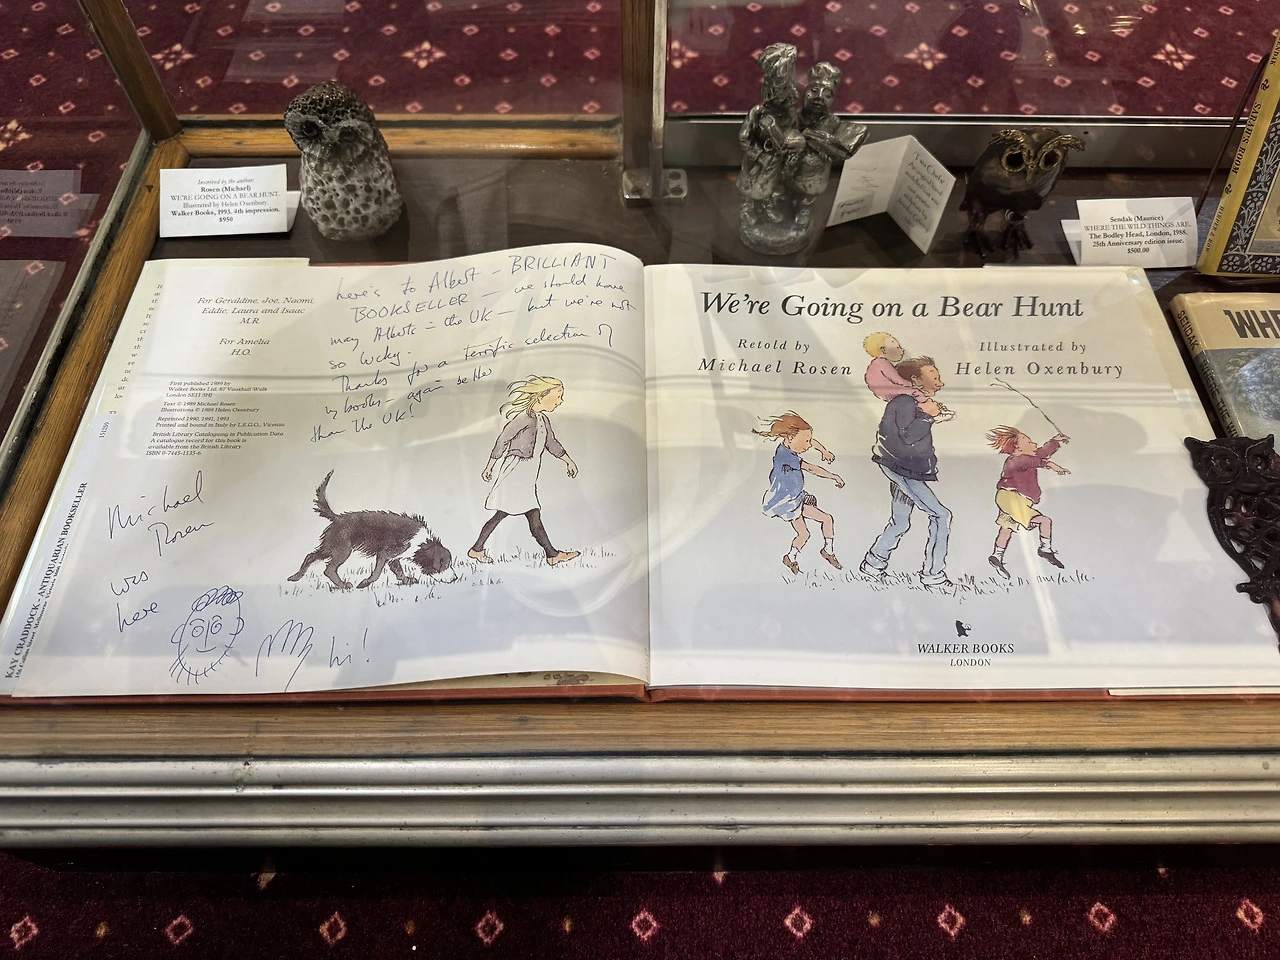 Inscribed by the author.
Rosen (Michael)
WE'RE GOING ON A BEAR HUNT.
Illustrated by Helen Oxenbury.
Walker Books, 1993, 4th impression.
$950
Sendak (Maurice)
WHERE THE WILD THINGS ARE.
The Bodley Head, London, 1988.
25th Anniversary edition issue.
$500.00
SARAH'S ROOM
SENDAK
WHE
For Geraldine, Joe, Naomi,
Eddie, Laura and Isaac
M.R.
For Amelia
H.O.
First published 1989 by
Walker Books Ltd, 87 Vauxhall Walk
London SE11 5HJ
Text © 1989 Michael Rosen
Illustrations © 1989 Helen Oxenbury
Reprinted 1990, 1991, 1993
Printed and bound in Italy by L.E.G.O., Vicenza
British Library Cataloguing in Publication Data
A catalogue record for this book is
available from the British Library
ISBN 0-7445-1135-6
here's to Albert – BRILLIANT
BOOKSELLER – we should have
many Alberts in the UK – but we're not
so lucky.
Thanks for a terrific selection of
my books – again better
than the UK!
Michael
Rosen
was
here
hi!
KAY CRADDOCK - ANTIQUARIAN BOOKSELLER
We're Going on a Bear Hunt
Retold by
Michael Rosen
Illustrated by
Helen Oxenbury
WALKER BOOKS
LONDON